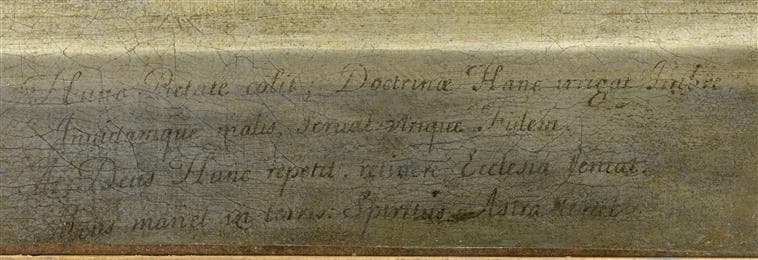 Hanc Pietate colit; Doctrinæ Hanc irrigat Imbre,
malis, servat utrique Fidem.
At Deus Hanc repetit. retinere Ecclesia tentat:
manet in terris: Spiritus Astra